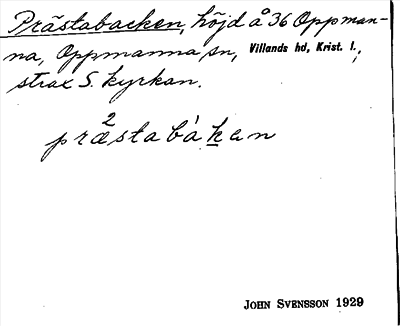 Prästabacken, höjd å 36 Oppman-
na, Oppmanna sn, Villands hd, Krist. l.,
strax S. kyrkan.
2
præstabàken
JOHN SVENSSON 1929